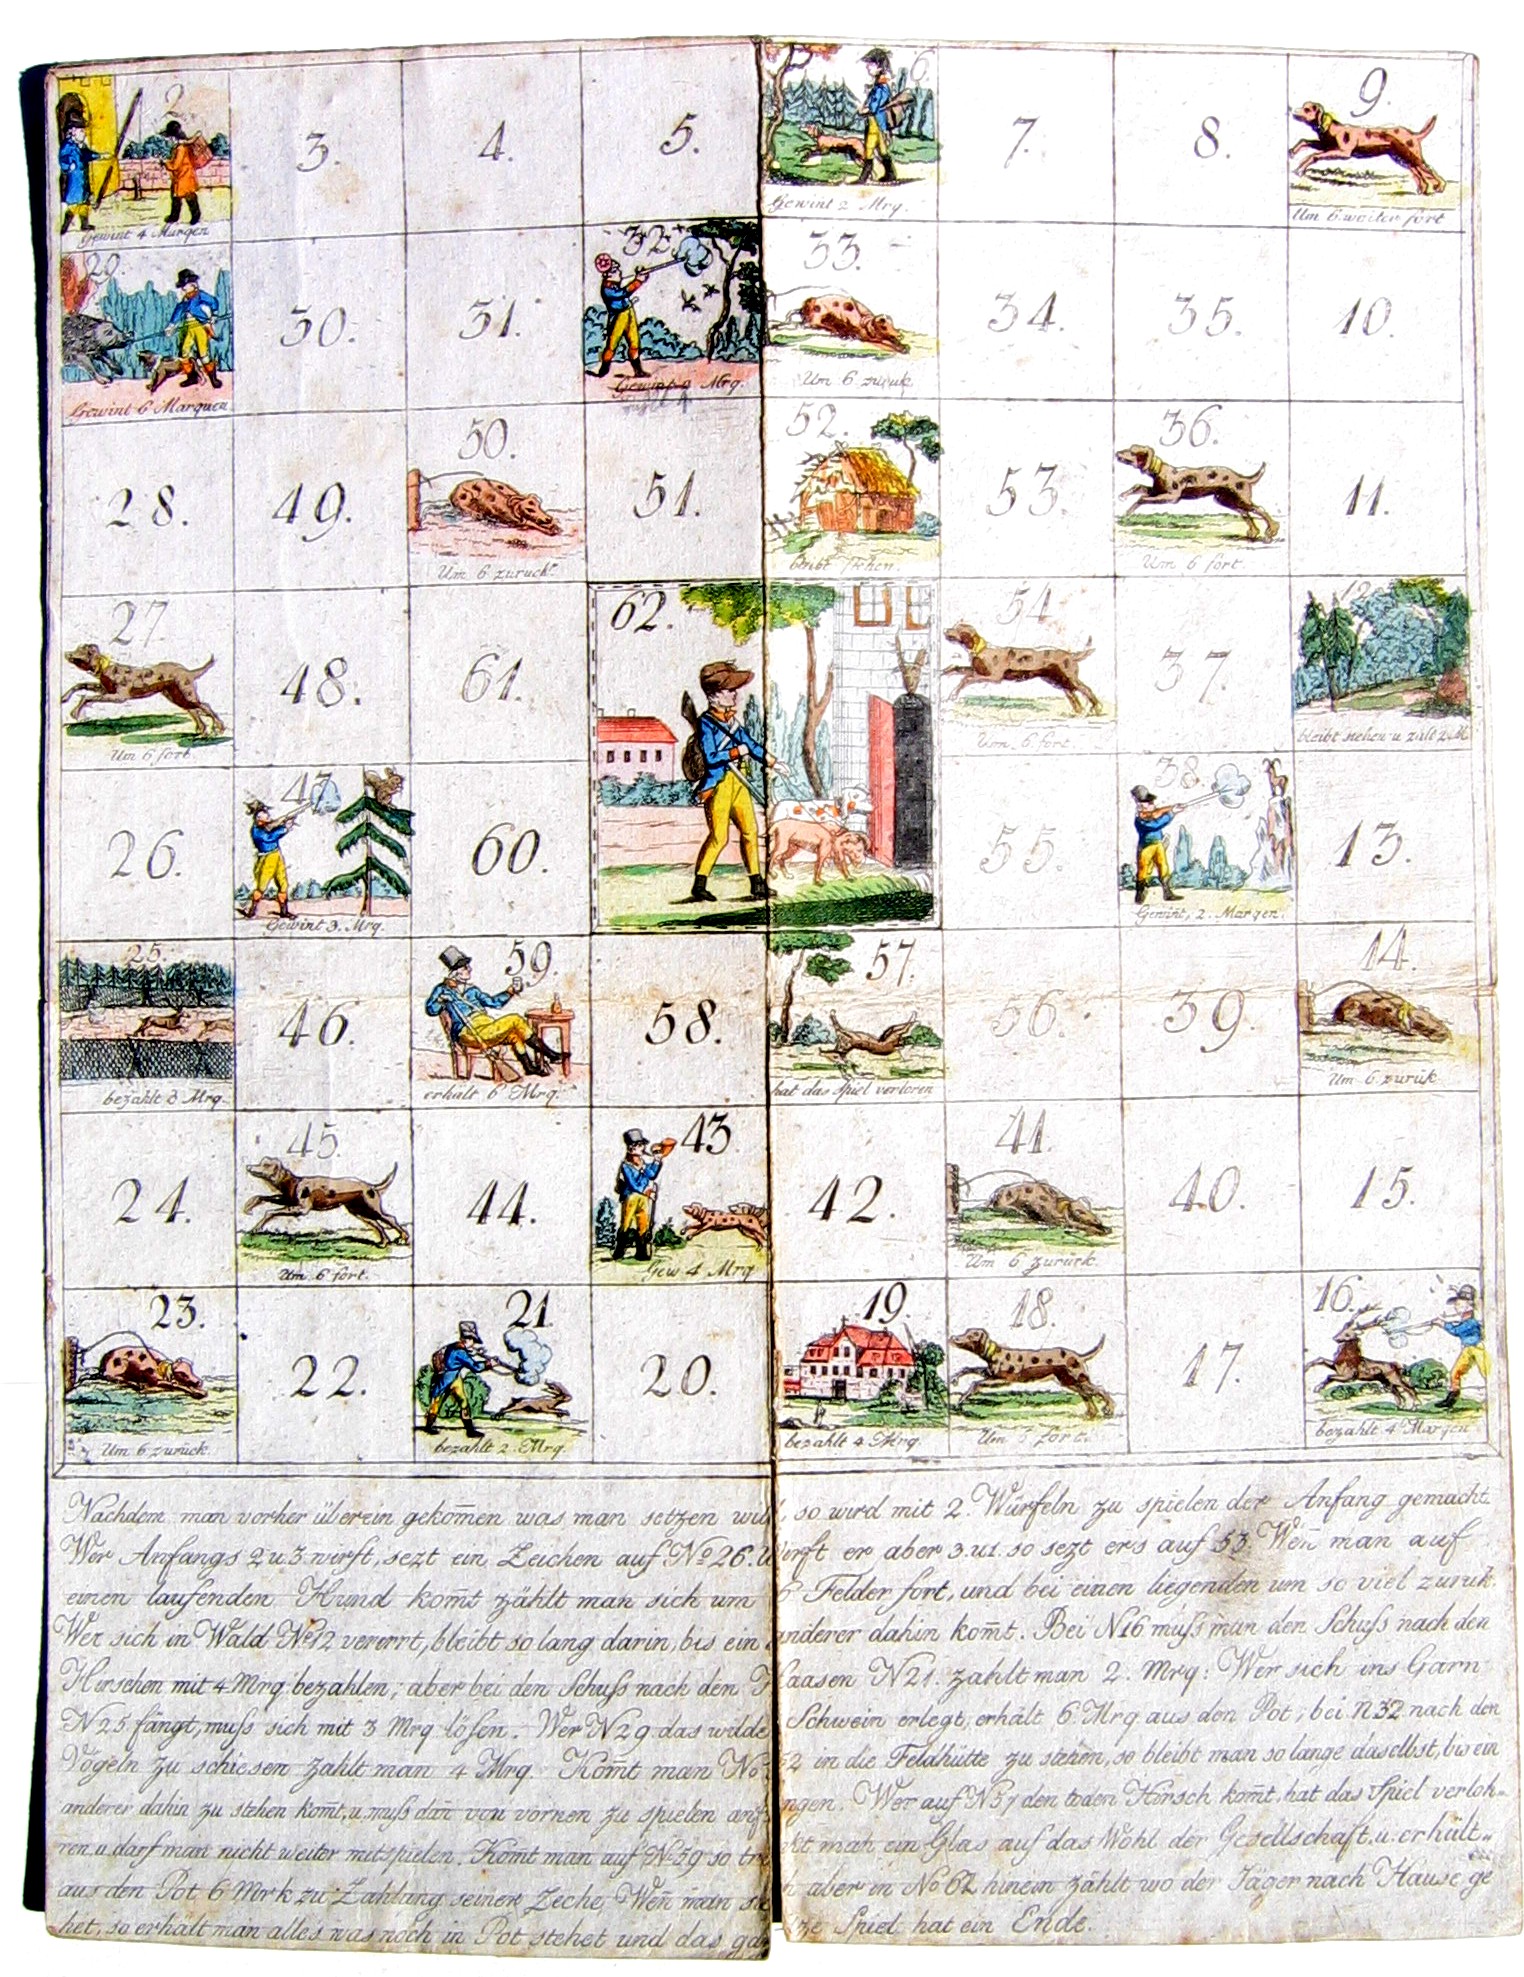 2.
Gewint 4 Margen
3.
4.
5.
6.
Gewint 2 Mrq.
7.
8.
9.
Um 6 weiter fort
29.
Gewint 6 Marquen
30.
31.
32.
Gewint Mrq.
33.
Um 6 zuruk
34.
35.
10.
28.
49.
50.
Um 6 zuruck.
51.
52.
bleibt stehen.
53.
36.
Um 6 fort.
11.
27
Um 6 fort
48.
61.
62.
54
Um 6 fort.
37.
12.
bleibt stehen u zalt 2 M
26.
47
Gewint 3. Mrq.
60.
55.
38.
Gewint, 2. Margen.
13.
25.
bezahlt 3 Mrq.
46.
59.
erhält 6 Mrq.
58.
57.
hat das Spiel verloren
56.
39.
14.
Um 6 zurük
24.
45.
Um 6 fort.
44.
43.
Gew 4 Mrq
42.
41.
Um 6 zurük.
40.
15.
23.
Um 6 zurück.
22.
21.
bezahlt 2. Mrq.
20.
19.
bezahlt 4 Mrq.
18.
Um 6 fort.
17.
16.
bezahlt 4 Margen
Nachdem man vorher überein gekom̄en was man setzen will, so wird mit 2. Würfeln zu spielen der Anfang gemacht.
Wer Anfangs 2 u. 3 wirft, sezt ein Zeichen auf No 26. Wirft er aber 3. u 1. so sezt ers auf 53. Wen̄ man auf
einen laufenden Hund kom̄t zählt man sich um 6 Felder fort, und bei einen liegenden um so viel zurük.
Wer sich in Wald No 12 verirrt, bleibt so lang darin, bis ein anderer dahin kom̄t. Bei N16 muſs man den Schuſs nach den
Hirschen mit 4 Mrq: bezahlen; aber bei den Schuſs nach den Haasen N 21. zahlt man 2. Mrq: Wer sich ins Garn
N 25 fängt, muſs sich mit 3 Mrq lösen. Wer N 29 das wilde Schwein erlegt, erhält 6. Mrq aus den Pot, bei N 32 nach den
Vögeln zu schiesen zahlt man 4 Mrq. Kom̄t man No 52 in die Feldhütte zu stehen, so bleibt man so lange daselbst, bis ein
anderer dahin zu stehen kom̄t, u. muſs dan̄ von vornen zu spielen anfangen. Wer auf N 57 den toden Hirsch kom̄t, hat das Spiel verloh-
ren u. darf man nicht weiter mitspielen. Kom̄t man auf N 59 so trinkt man ein Glas auf das Wohl der Gesellschaft, u. erhält
aus den Pot 6 Mrk zu Zahlung seiner Zeche, Wen̄ man sich aber in No 62 hinein zählt wo der Jäger nach Hause ge
het, so erhält man alles was noch in Pot stehet und das ganze Spiel hat ein Ende.